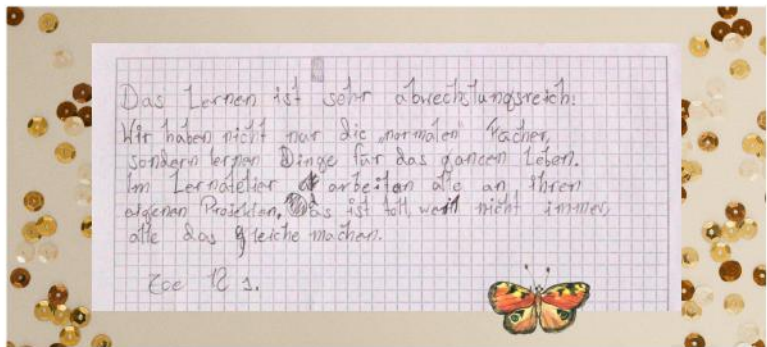 Das Lernen ist sehr abwechslungsreich:
Wir haben nicht nur die „normalen" Fächer,
sondern lernen Dinge für das ganzen Leben.
Im Lernatelier arbeiten alle an ihren
eigenen Projekten. Das ist toll, weil nicht immer,
alle das gleiche machen.
Zoe 12 J.